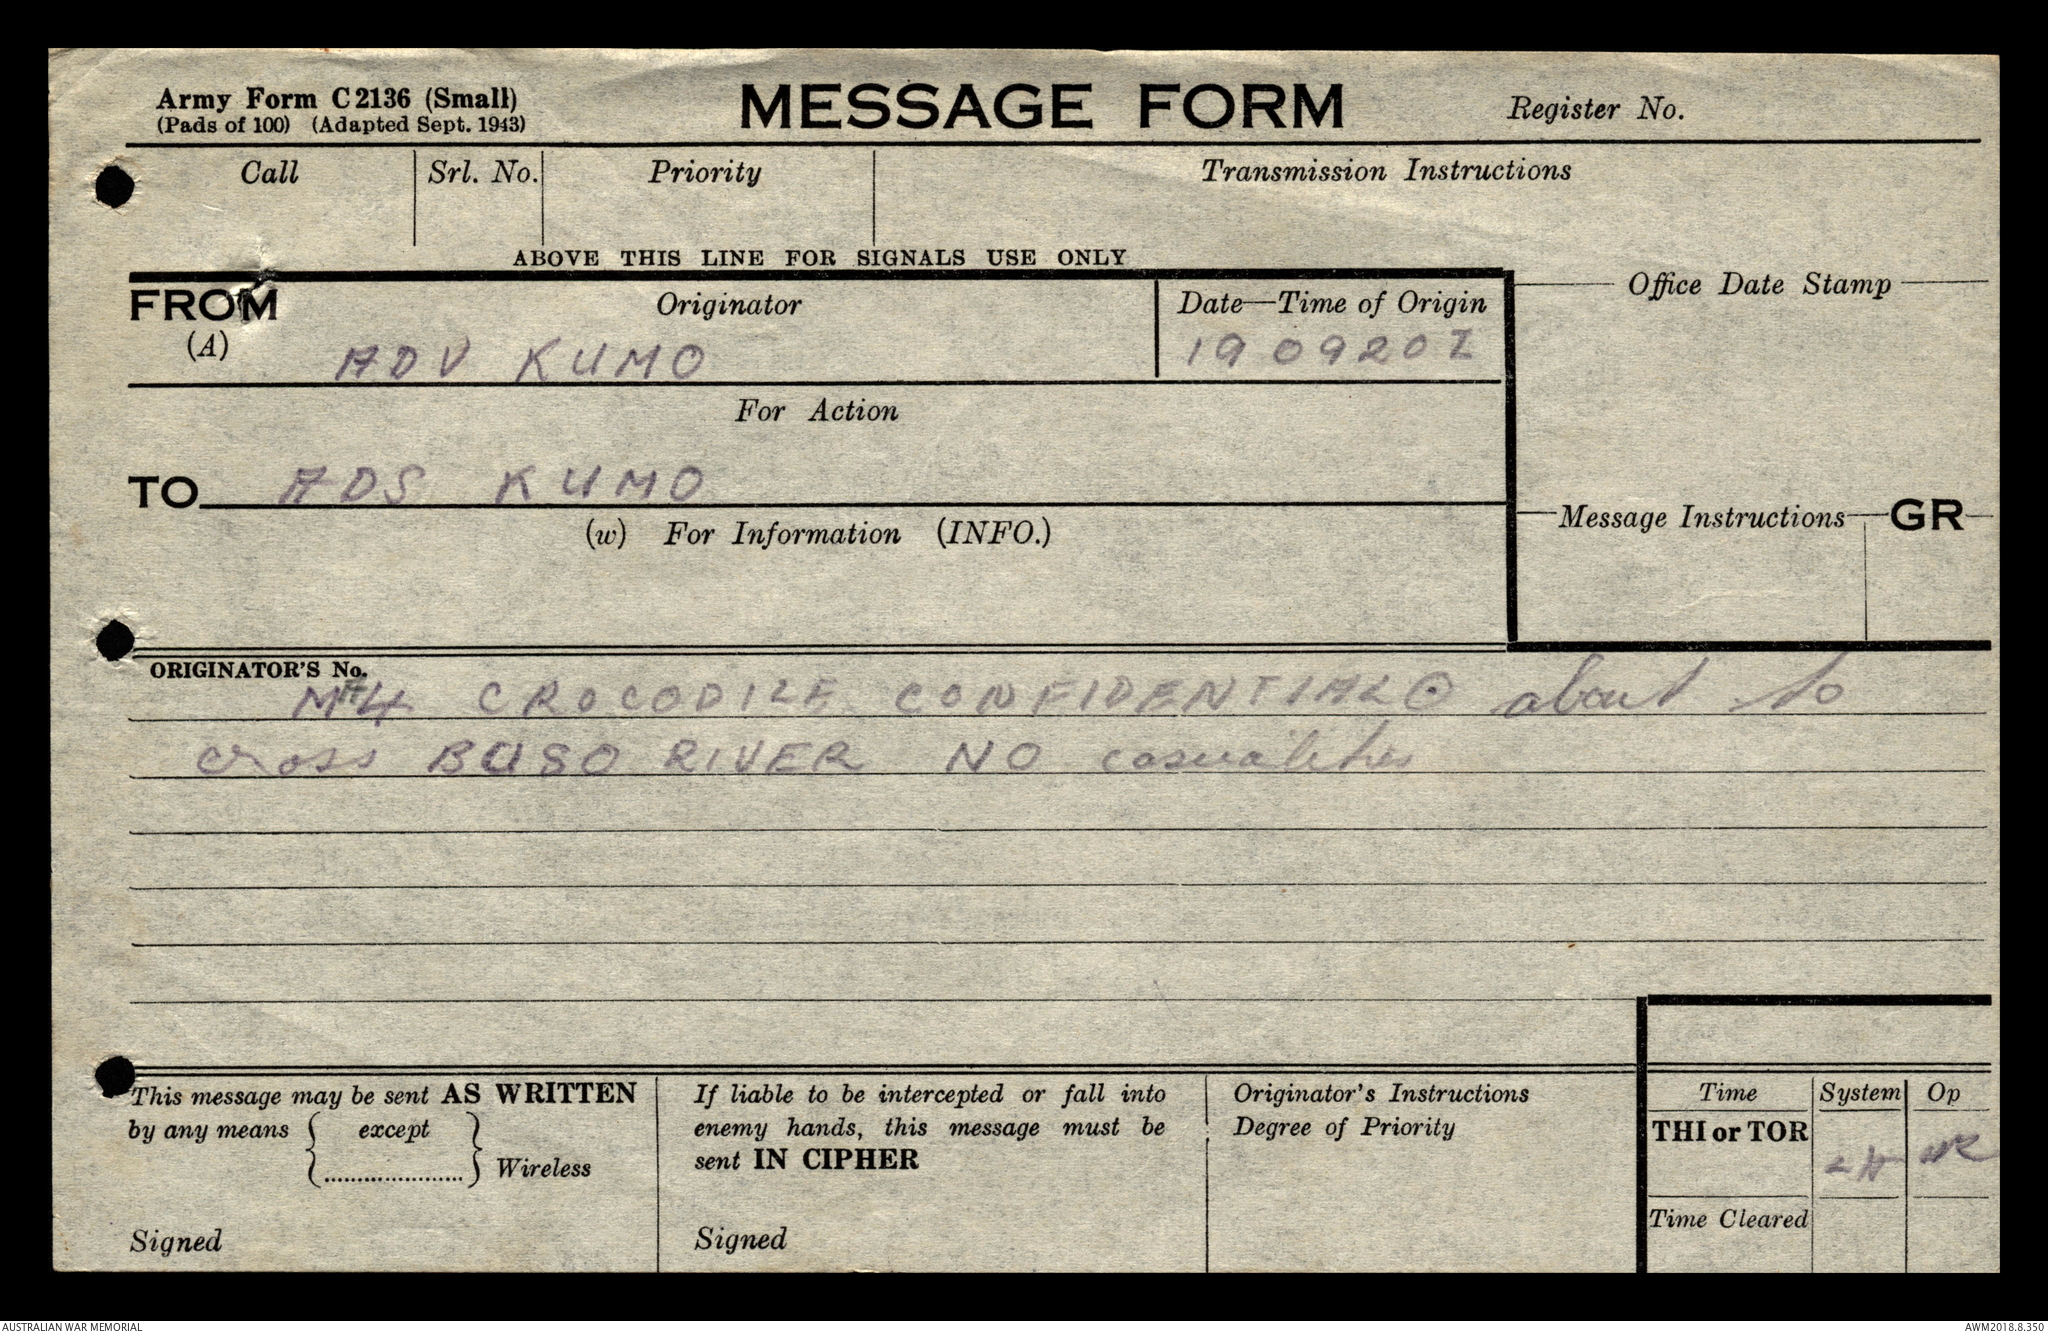 Army Form C2136 (Small)
(Pads of 100) (Adapted Sept. 1943)
MESSAGE FORM
Register No.
Call
Srl. No.
Priority
Transmission Instructions
ABOVE THIS LINE FOR SIGNALS USE ONLY
FROM
(A)
Originator
ADV KUMO
Date—Time of Origin
190920Z
Office Date Stamp
For Action
TO ADS KUMO
(w) For Information (INFO.)
Message Instructions
GR
ORIGINATOR'S No.
CROCODILE CONFIDENTIAL about to
cross BUSO RIVER NO casualities
This message may be sent AS WRITTEN
by any means { except
..................... } Wireless
Signed
If liable to be intercepted or fall into
enemy hands, this message must be
sent IN CIPHER
Signed
Originator's Instructions
Degree of Priority
Time
System
Op
THI or TOR
Time Cleared
AUSTRALIAN WAR MEMORIAL
AWM2018.8.350